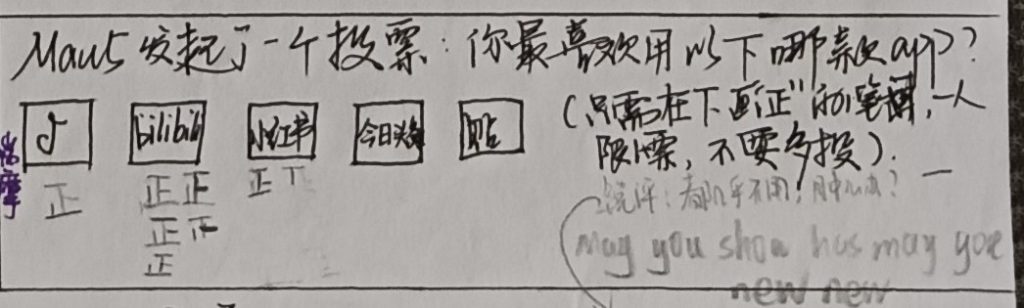 Mau5发起了一个投票:你最喜欢用以下哪款app?
(只需在下画"正"的1笔画,一人
限1票,不要多投).
bilibili 小红书 今日头条 贴
正 正正 正丅
正正
正
锐评:都几乎不用,
may you show has may you
new new